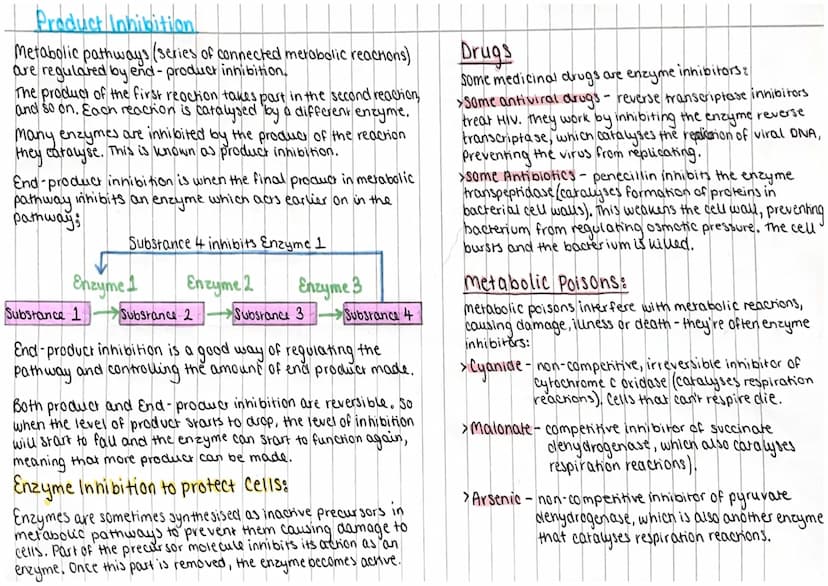 Product Inhibition
Metabolic pathways (series of connected metabolic reactions)
are regulated by end-product inhibition.
The product of the first reaction takes part in the second reaction,
and so on. Each reaction is catalysed by a different enzyme.
Many enzymes are inhibited by the product of the reaction
they catalyse. This is known as product inhibition.
End-product inhibition is when the final product in metabolic
pathway inhibits an enzyme which acts earlier on in the
pathway:
Substance 4 inhibits Enzyme 1
Enzyme 1 Enzyme 2 Enzyme 3
Substance 1 Substance 2 Substance 3 Substance 4
End-product inhibition is a good way of regulating the
pathway and controlling the amount of end product made.
Both product and End-product inhibition are reversible. So
when the level of product starts to drop, the level of inhibition
will start to fall and the enzyme can start to function again,
meaning that more product can be made.
Enzyme Inhibition to protect Cells:
Enzymes are sometimes synthesised as inactive precursors in
metabolic pathways to prevent them causing damage to
cells. Part of the precursor molecule inhibits its action as an
enzyme. Once this part is removed, the enzyme becomes active.
Drugs
Some medicinal drugs are enzyme inhibitors:
>Some antiviral drugs - reverse transcriptase inhibitors
treat HIV. They work by inhibiting the enzyme reverse
transcriptase, which catalyses the of viral DNA,
preventing the virus from replicating.
>some Antibiotics - penecillin inhibits the enzyme
transpeptidase (catalyses formation of proteins in
bacterial cell walls). This weakens the cell wall, preventing
bacterium from regulating osmotic pressure. The cell
bursts and the bacterium is killed.
Metabolic Poisons:
Metabolic poisons interfere with metabolic reactions,
causing damage, illness or death - they're often enzyme
inhibitors:
>Cyanide - non-competitive, irreversible inhibitor of
cytochrome c oxidase (catalyses respiration
reactions). Cells that can't respire die.
>Malonate - competitive inhibitor of succinate
dehydrogenase, which also catalyses
respiration reactions).
>Arsenic - non-competitive inhibitor of pyruvate
dehydrogenase, which is also another enzyme
that catalyses respiration reactions.